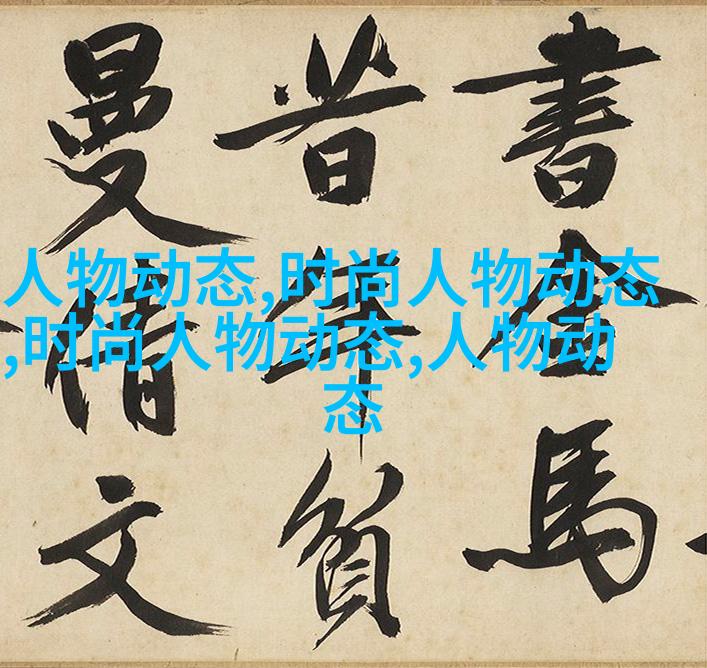 書金馬
昔年負
曼倩文
人物动态,时尚人物动态
,时尚人物动态,人物动
态